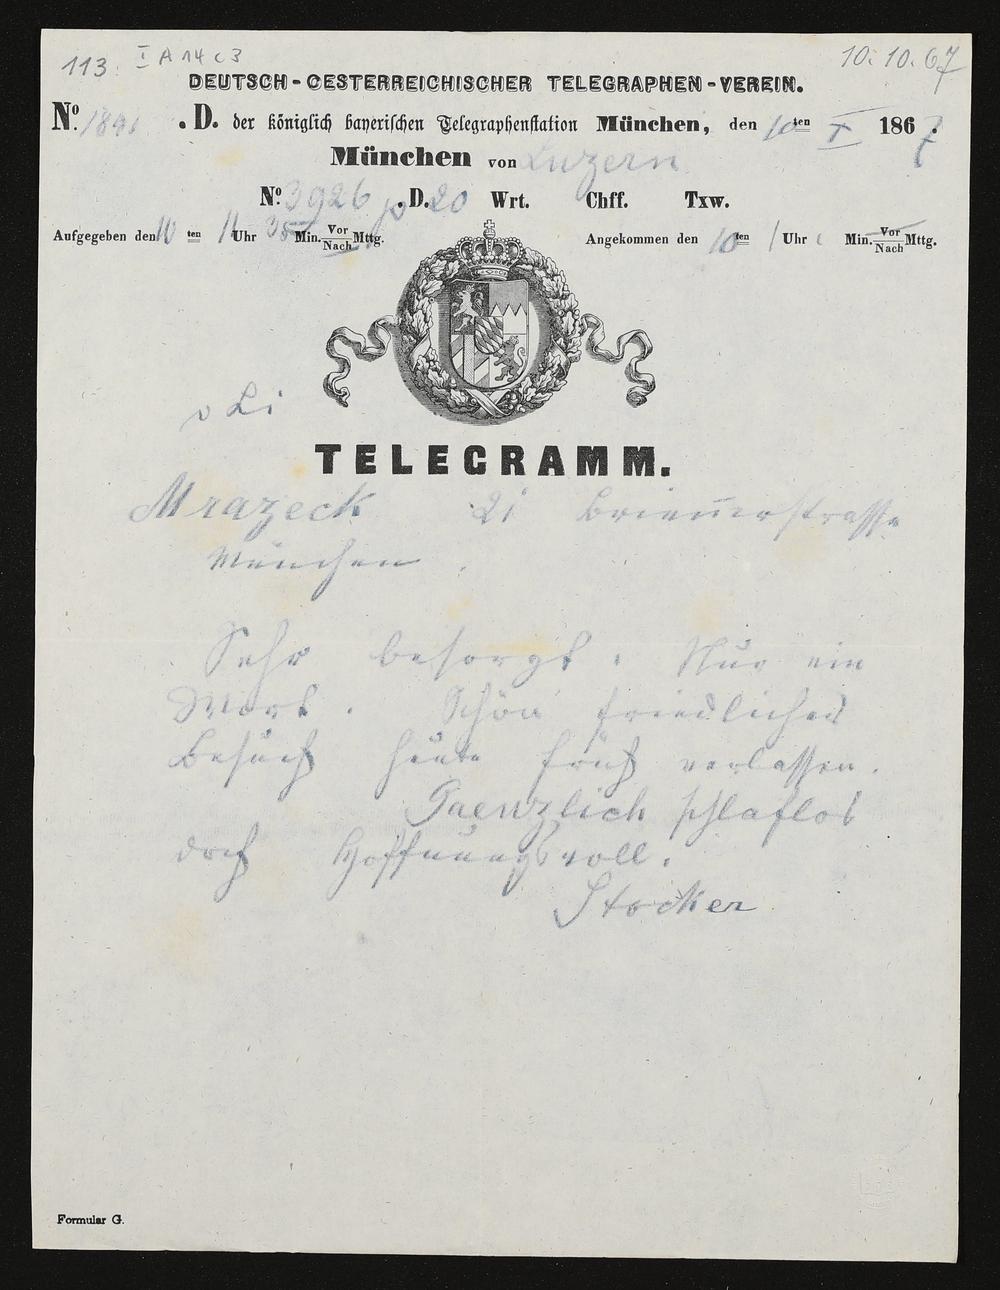 113. I A 14 c 3
10. 10. 67
DEUTSCH-OESTERREICHISCHER TELEGRAPHEN-VEREIN.
No. .D. der königlich bayerischen Telegraphenstation München, den 10ten X 1867.
München von Luzern
No. 3926 p .D. 20 Wrt. Chff. Txw.
Aufgegeben den 10ten 11 Uhr 35 Min. Vor/Nach Mttg.
Angekommen den 10ten 1 Uhr Min. Vor/Nach Mttg.
v Li
TELEGRAMM.
Mrazeck 21 Briennerstrasse
München.
Sehr besorgt. Nur ein
Wort. Schön friedlichen
Besuch heute früh verlassen.
Gaenzlich schlaflos
doch Hoffnungsvoll.
Stocker
Formular G.